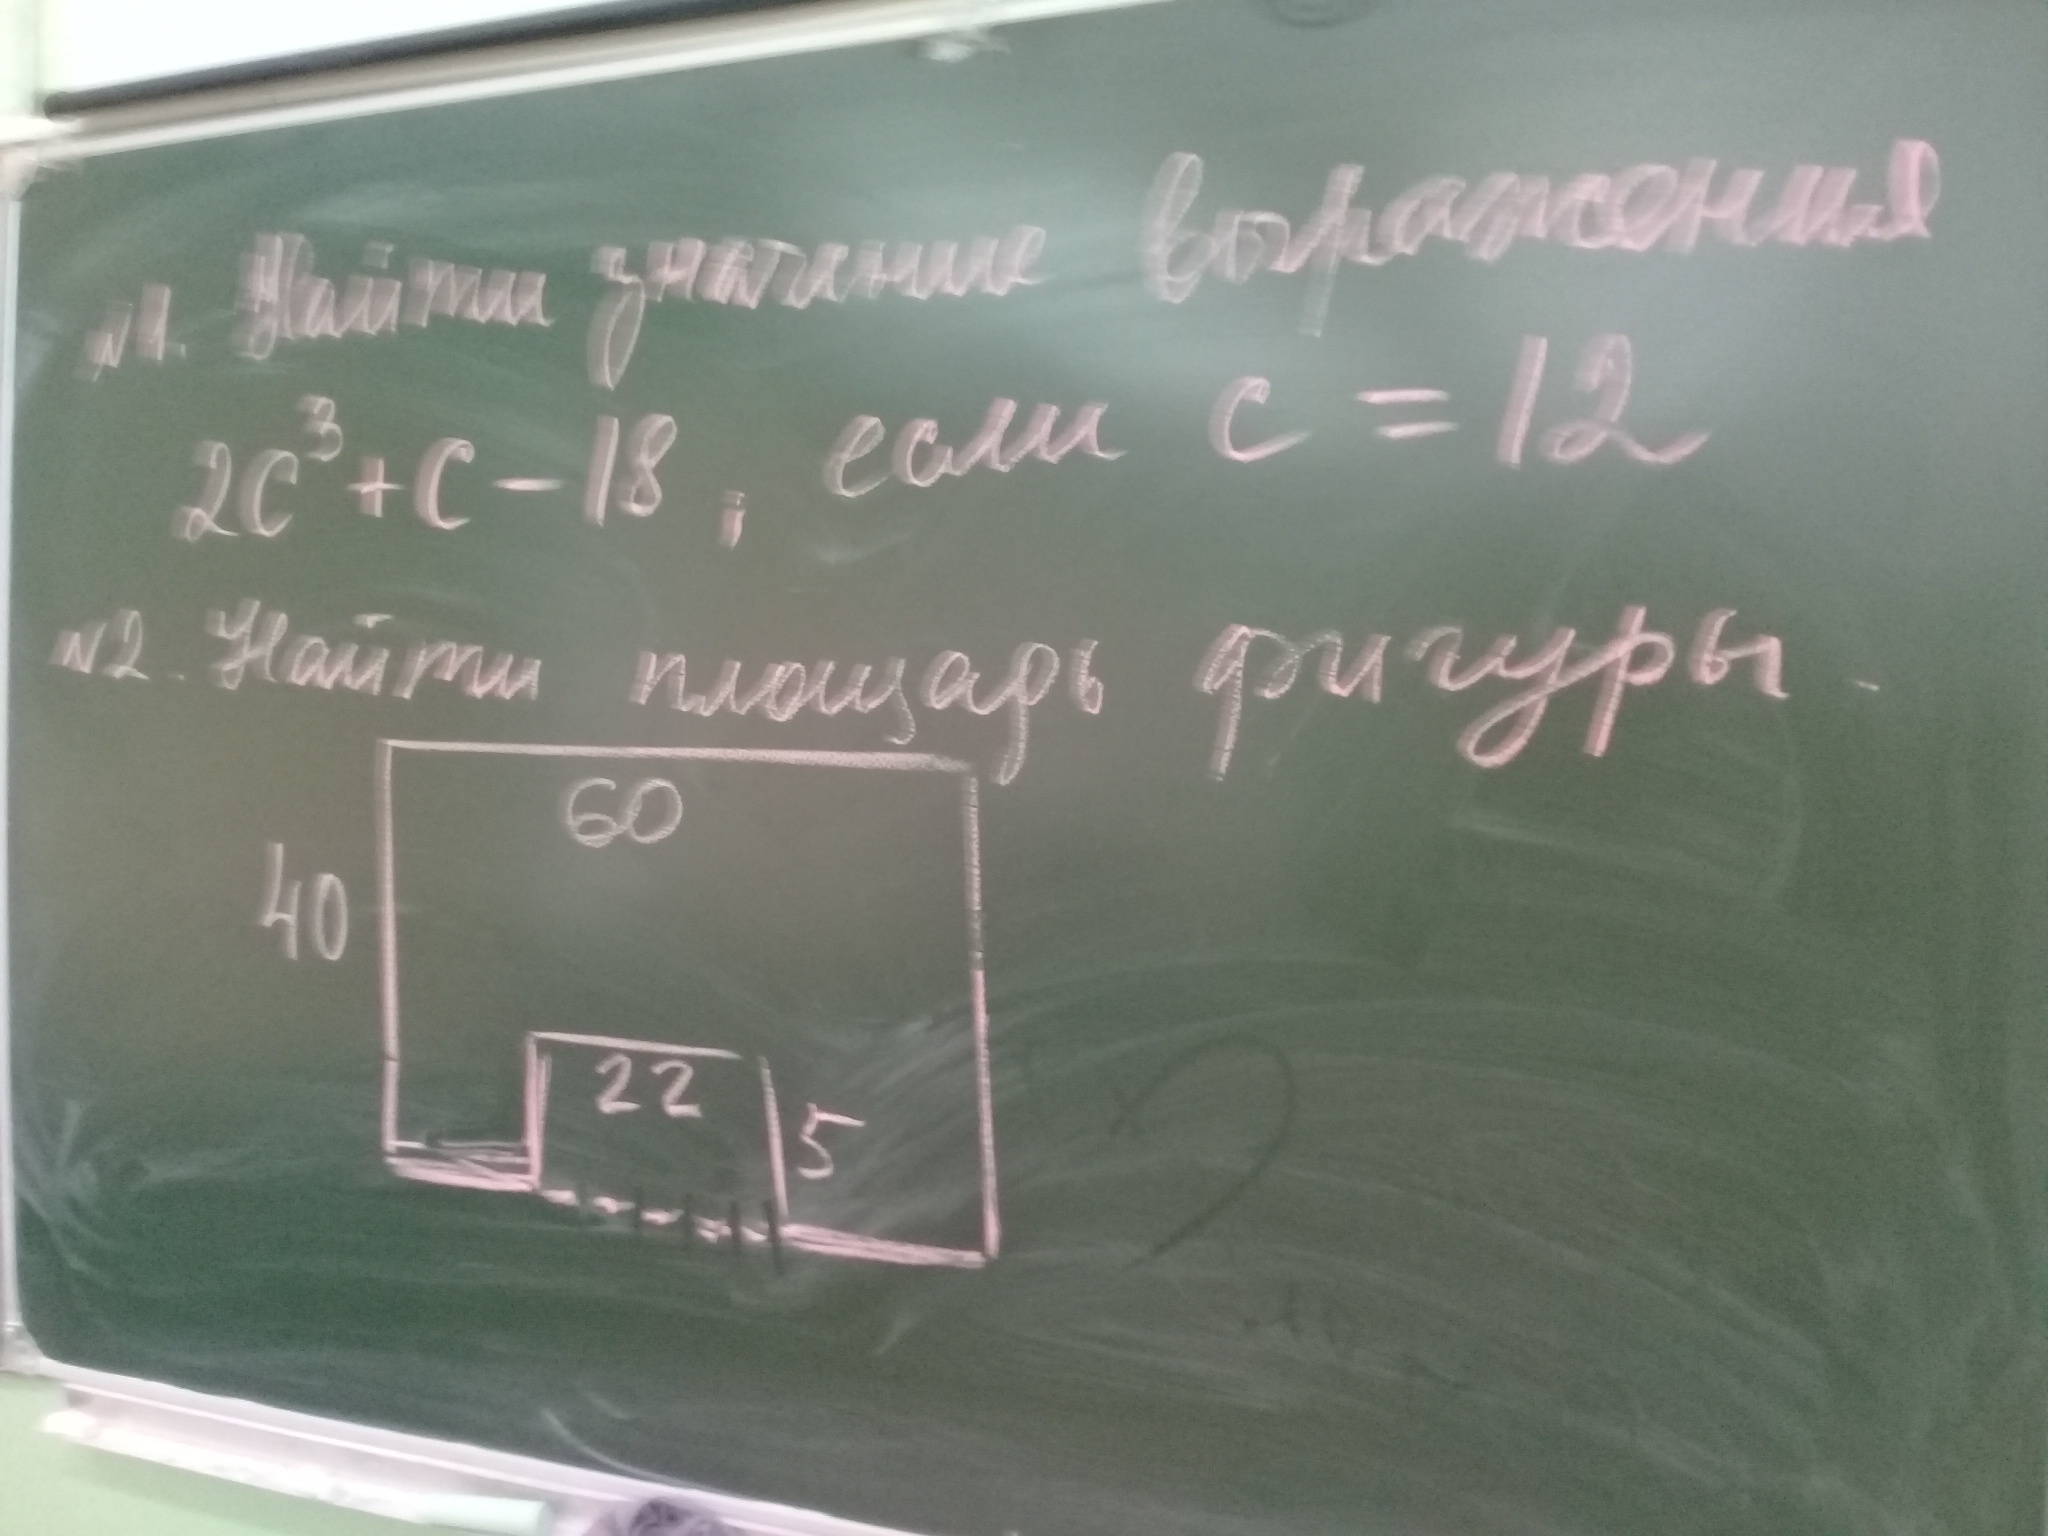 №1. Найти значение выражения
2c³ + c - 18, если c = 12
№2. Найти площадь фигуры.
60
40
22
5